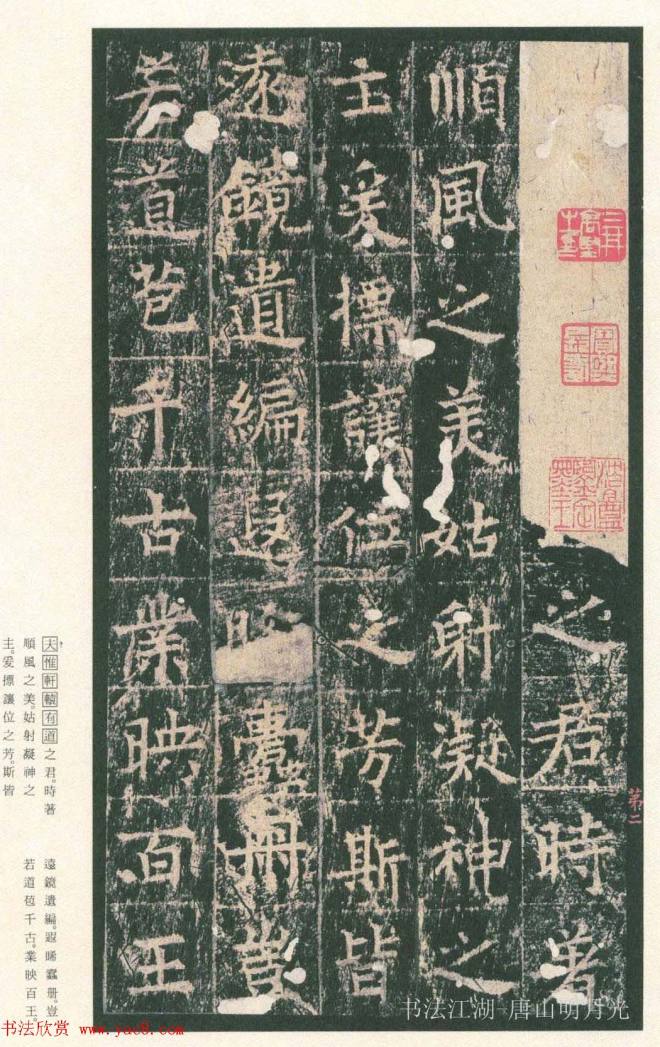 之君時著
順風之美姑射凝神之
主爰摽讓位之芳斯皆
遠鏡遺編遐晞蠹冊豈
若道苞千古業映百王
第二
天惟軒轅有道之君。時著
順風之美。姑射凝神之
主。爰摽讓位之芳。斯皆
遠鏡遺編。遐晞蠹册。豈
若道。苞千古。業映百王。
书法江湖-唐山明月光
书法欣赏 www.yac8.com